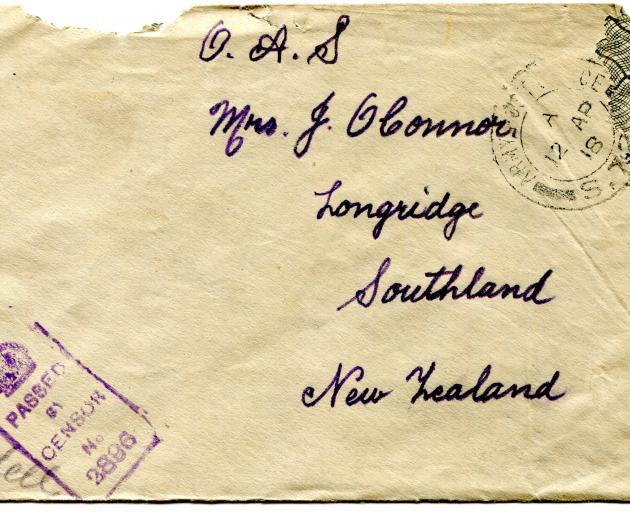 O. A. S
Mrs. J. O'Connor
Longridge
Southland
New Zealand
ARMY
A
12 AP
18
S.
PASSED
BY
CENSOR
No
3896